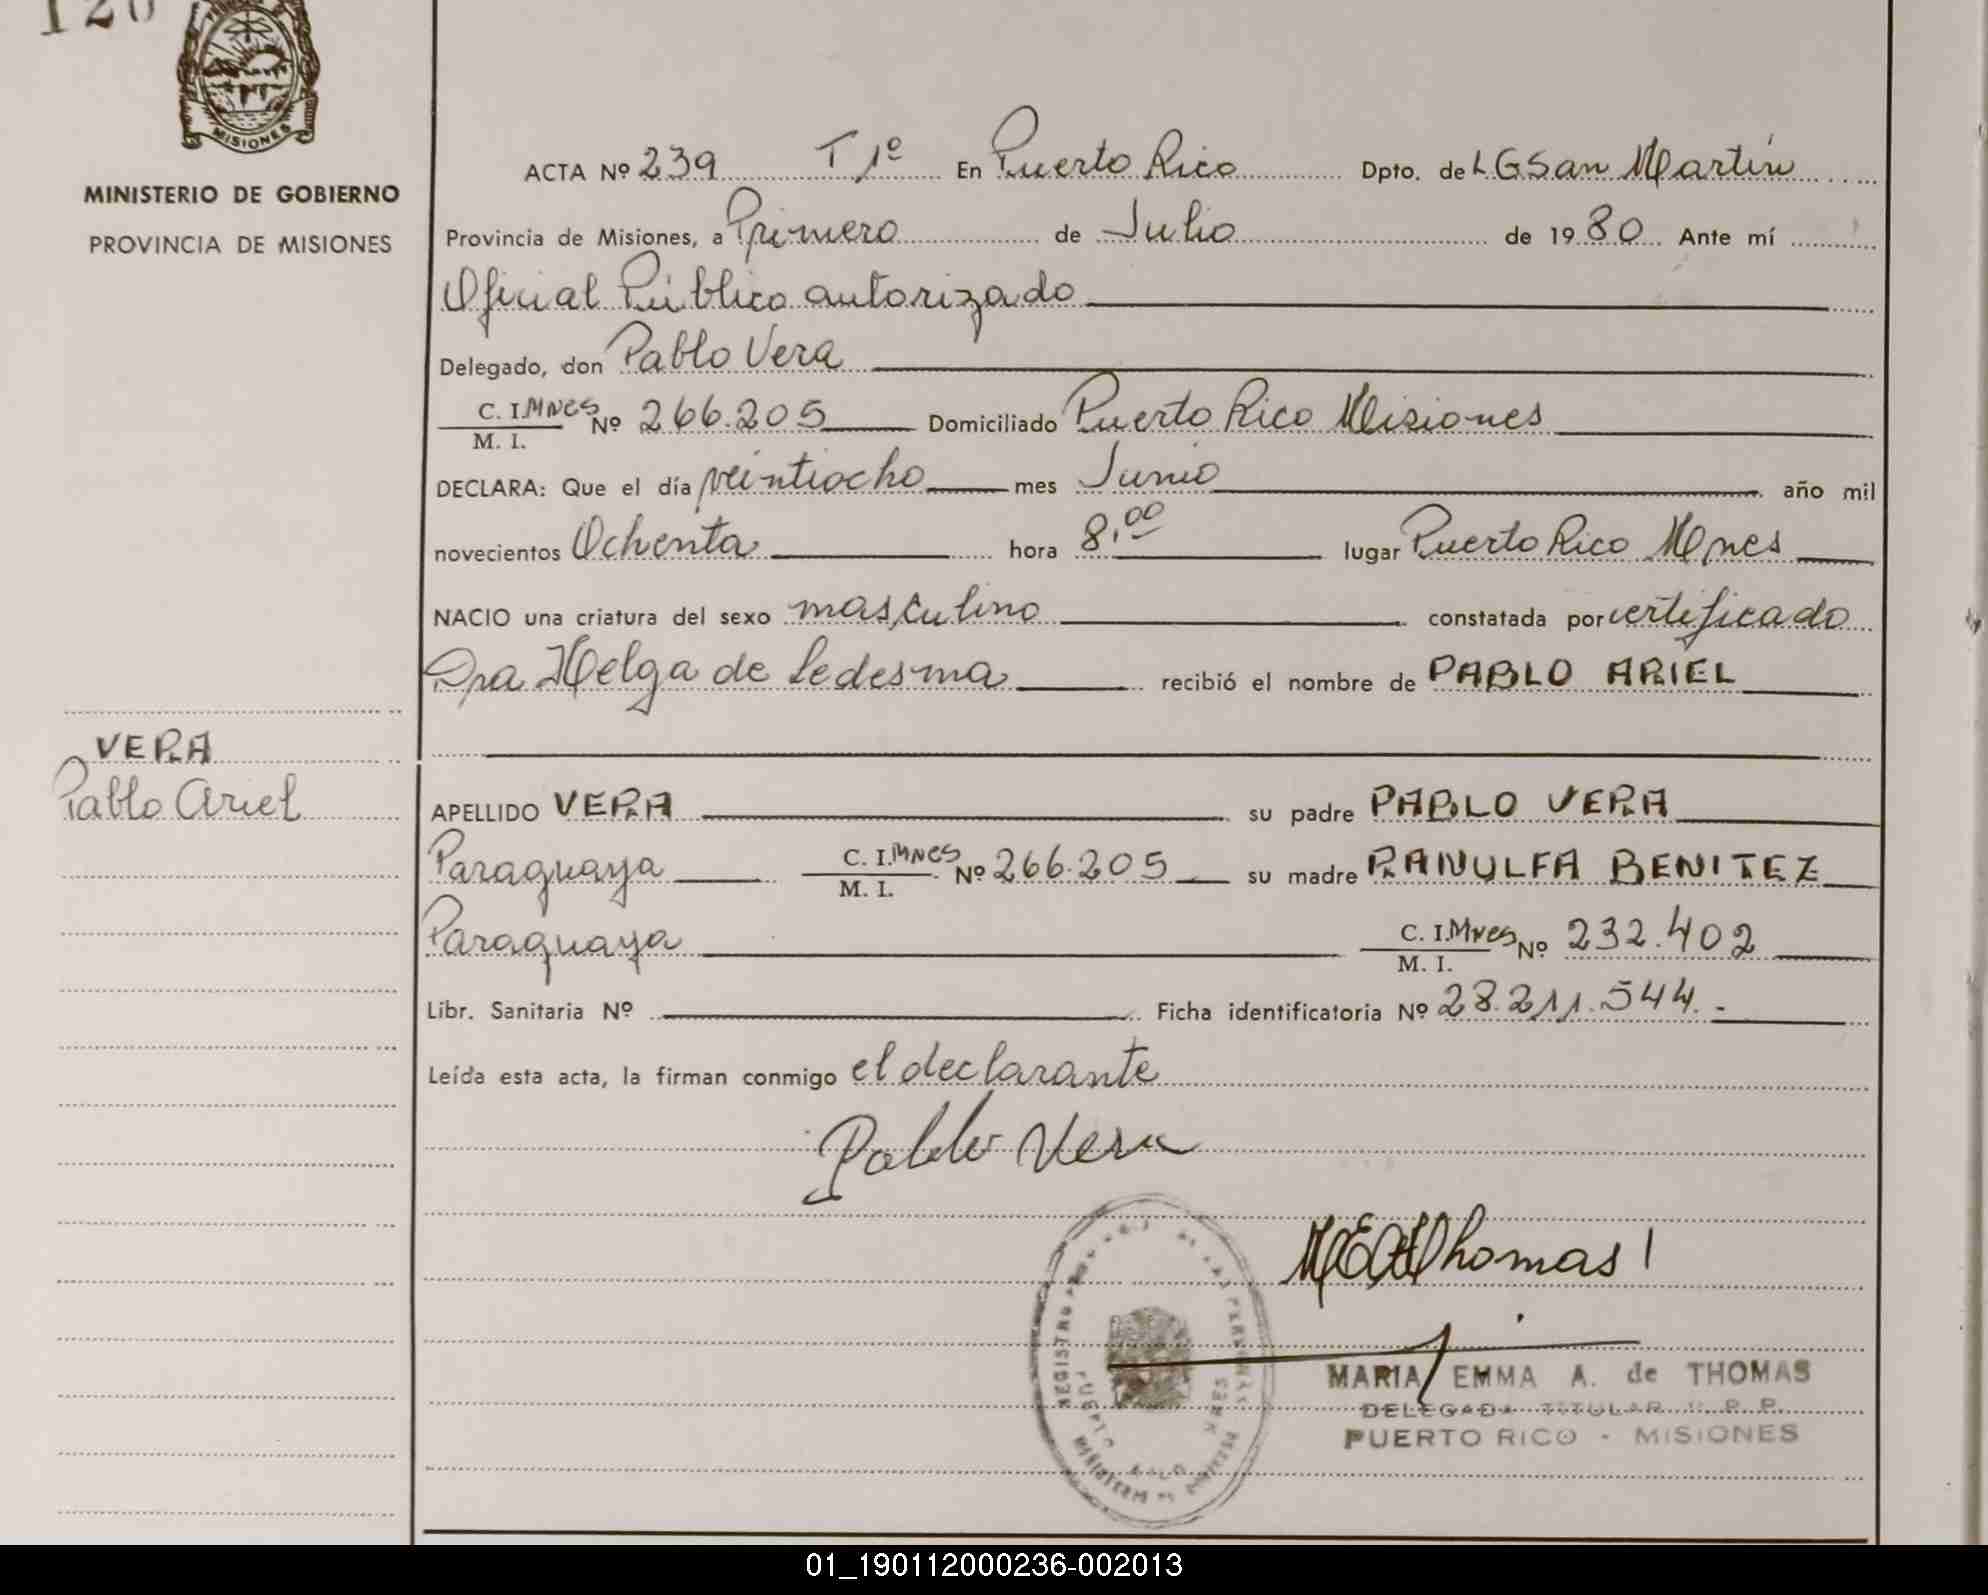 120
MISIONES
MINISTERIO DE GOBIERNO
PROVINCIA DE MISIONES
ACTA Nº 239 T 1º En Puerto Rico Dpto. de LGSan Martín
Provincia de Misiones, a Primero de Julio de 1980 Ante mí
Oficial Público autorizado
Delegado, don Pablo Vera
C. I. Mnes Nº 266.205 Domiciliado Puerto Rico Misiones
M. I.
DECLARA: Que el día veintiocho mes Junio año mil
novecientos Ochenta hora 8,00 lugar Puerto Rico Mnes
NACIO una criatura del sexo masculino constatada por certificado
Dra Helga de Ledesma recibió el nombre de PABLO ARIEL
VERA
Pablo Ariel
APELLIDO VERA su padre PABLO VERA
Paraguaya C. I. Mnes Nº 266.205 su madre RANULFA BENITEZ
M. I.
Paraguaya C. I. Mnes Nº 232.402
M. I.
Libr. Sanitaria Nº Ficha identificatoria Nº 28.211.544.-
Leída esta acta, la firman conmigo el declarante
Pablo Vera
MEAThomas
REGISTRO DE LAS PERSONAS
PUERTO RICO MNES
MINISTERIO DE
MARIA EMMA A. de THOMAS
DELEGADA TITULAR R. P. P.
PUERTO RICO - MISIONES
01_190112000236-002013